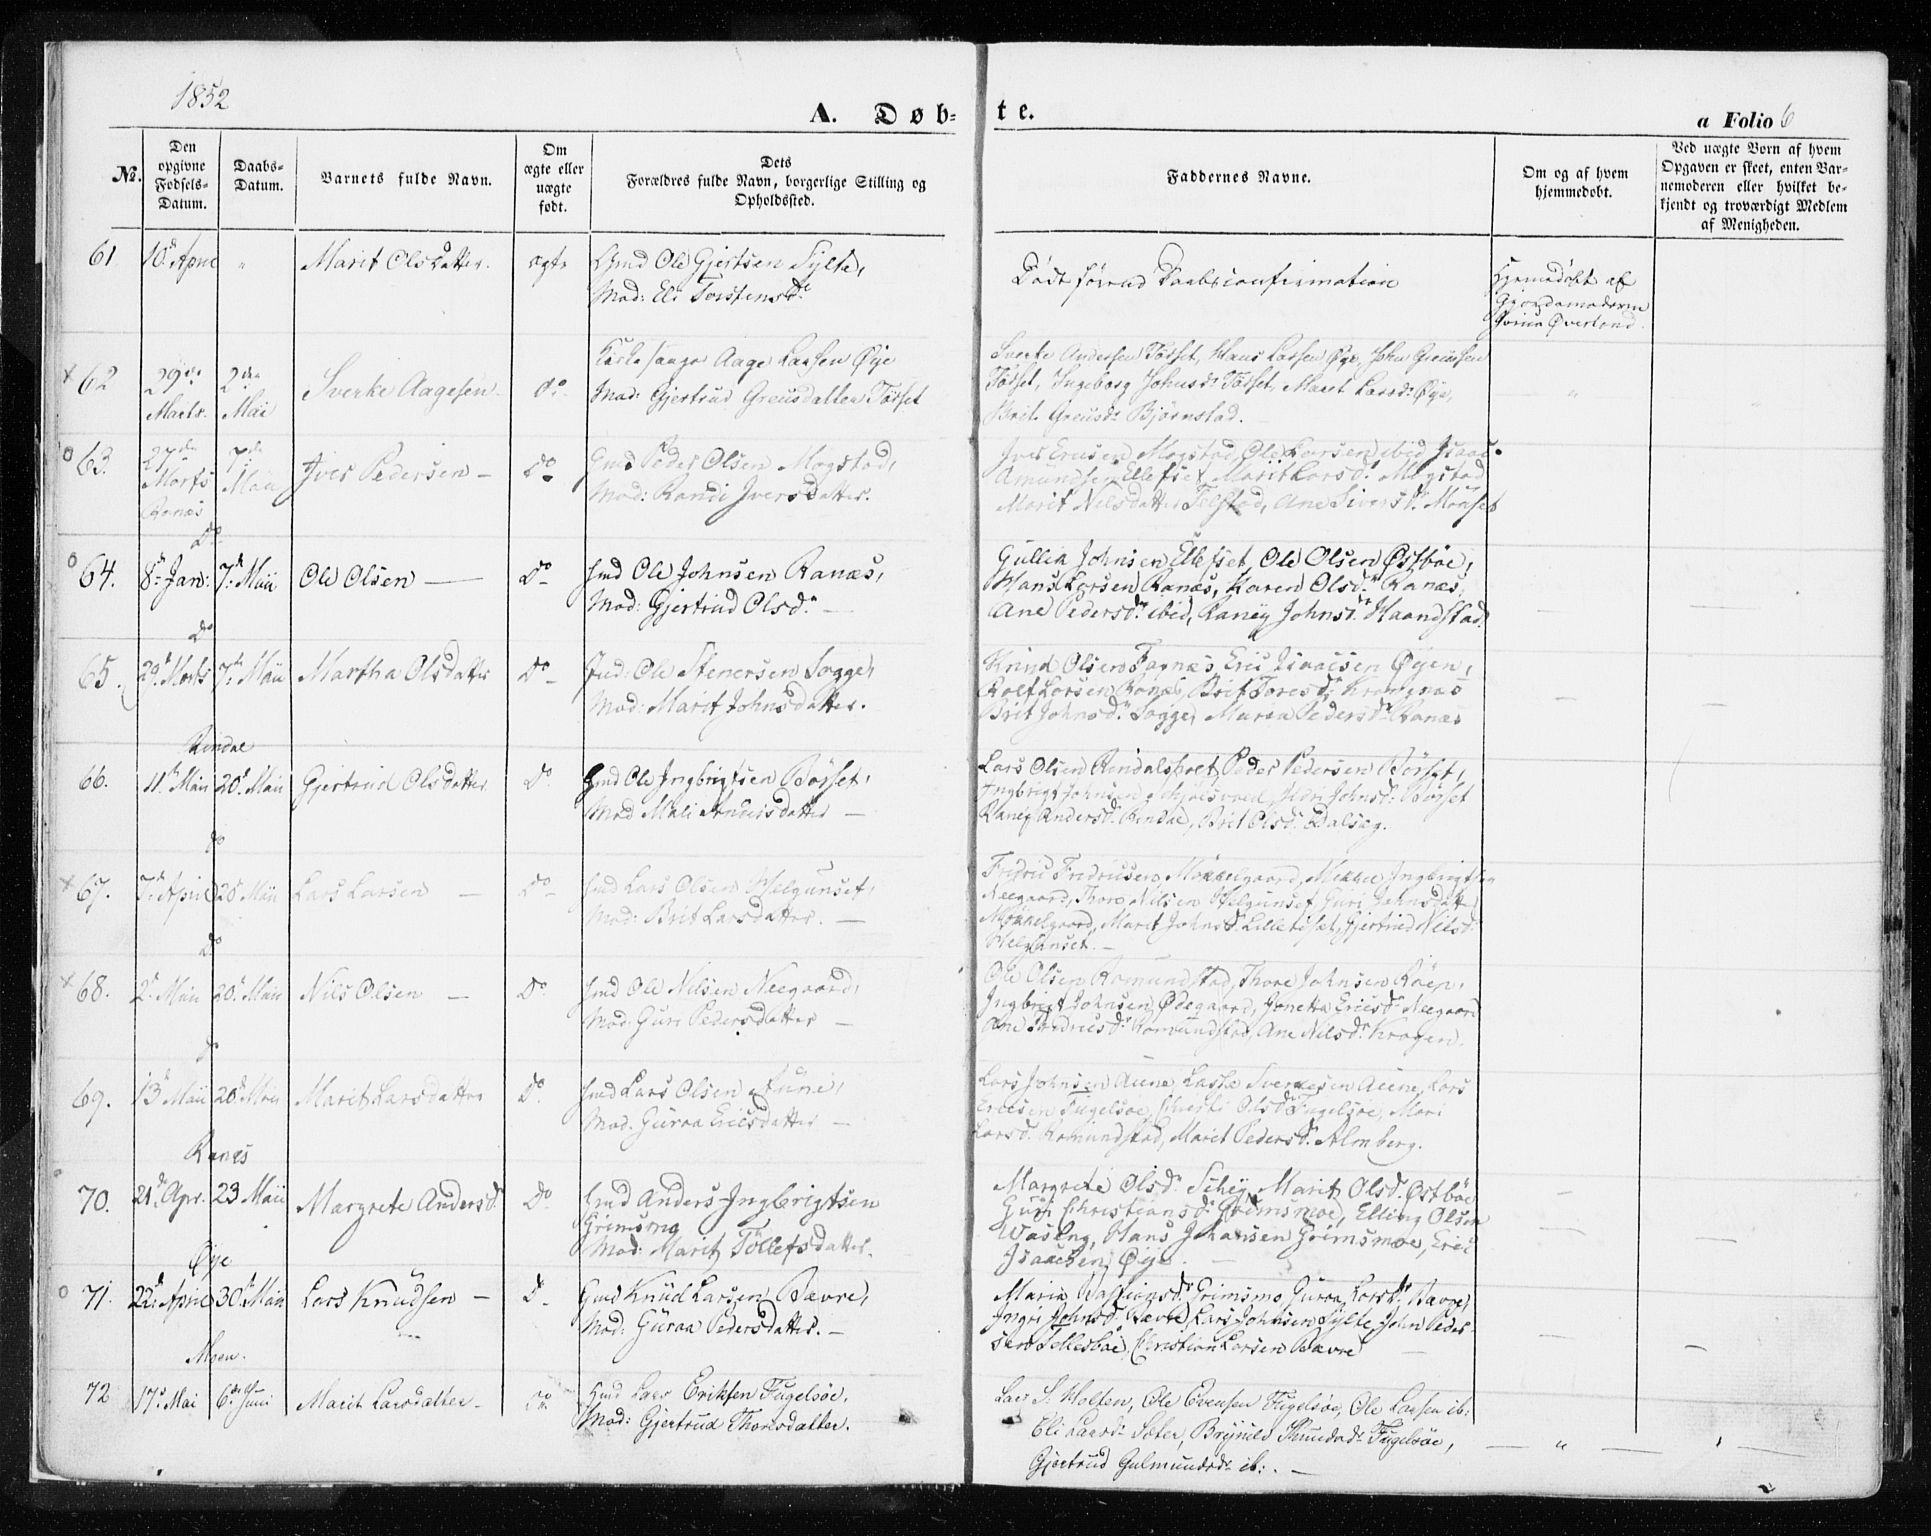 1852
A. Døb-
te.
a Folio 6
No.
Den opgivne Fødsels-Datum.
Daabs-Datum.
Barnets fulde Navn.
Om ægte eller uægte født.
Dets Forældres fulde Navn, borgerlige Stilling og Opholdssted.
Faddernes Navne.
Om og af hvem hjemmedøbt.
Ved uægte Børn af hvem Opgaven er skeet, enten Barnemoderen eller hvilket bekjendt og troværdigt Medlem af Menigheden.
61 10d April " Marit Olsdatter. ægte Gmd Ole Gjertsen Sylte,
Mod: Eli Torstensdr
Død førend Daabsconfirmation
Hjemmedøbt af
Gjordemoderen
Øverland.
x 62 29de Marts. 2den Mai Sverke Aagesen. do. Kirkesanger Aage Larsen Øye
Mod: Gjertrud Greusdatter Tørset
Sverke Andersen Tørset, Hans Larsen Øye, John Greusen
Tørset, Ingeborg Johnsdr Tørset, Marit Larsdr Øye,
Brit Greusdr Bjørnstad.
o 63. 27de Marts 7de Mai Iver Pedersen - Do Gmd Peder Olsen Mogstad,
Mod: Randi Iversdatter.
Iver Ericsen Mogstad, Ole Larsen ibid, Isaac
Amundsen Ellefset, Marit Larsd. Mogstad
Marit Nilsdatter Telstad, Ane Siversd. Moaset
Ranæs
Do
o 64. 8d Jan: 7d Maii Ole Olsen — Do Hmd Ole Johnsen Ranæs,
Mod: Gjertrud Olsd. —
Gullik Johnsen Ellefset, Ole Olsen Østbøe,
Hans Larsen Ranæs, Karen Olsd. Ranæs,
Ane Pedersd. ibid, Raney Johnsd. Haandstad.
Do
65. 29. Marts 7d Maii Martha Olsdatter Do Ole Stenersen Sogge,
Mod: Marit Johnsdatter.
Knud Olsen Fagnæs, Eric Isaacsen Øyen,
Rolf Larsen Ranæs, Brit Toresd. Krangnæs
Brit Johnsd. Sogge, Maren Pedersd. Ranæs
Rindal
66. 11d Maii 20d Maii Gjertrud Olsdatter Do Gmd Ole Ingbrigtsen Børset,
Mod Mali Andersdatter —
Lars Olsen Rindalsholt, Peder Pedersen Børset,
Ingbrigt Johnsen Johnsd. Børset
Raney Andersd. Rindal, Brit Olsd. Dalseg.
Do
x 67. 7d April 20 Maii Lars Larsen — Do Hmd Lars Olsen Helgunset,
Mod: Brit Larsdatter. —
Fredric Fredricsen Møkkelgaard, Mikkel Ingbrigtsen
Neegaard, Thore Nilsen Helgunset, Guri Johnsdatter
Møkkelgaard, Marit Johnsd. Lilletiset, Gjertrud Nilsd.
Helgunset. —
Do
x 68. 2d Maii 20d Maii Nils Olsen — Do Hmd Ole Nilsen Neegaard,
Mod: Guri Pedersdatter —
Ole Olsen Romundstad, Thore Johnsen Røen,
Ingbrigt Johnsen Ødegaard, Jonetta Ericsd. Neegaard
Ane Fredricsd. Romundstad, Ane Nilsd. Krogen.
Do
69. 13d Maii 20d Maii Marit Larsdatter Do Hmd Lars Olsen Aune,
Mod. Guroe Ericsdatter —
Lars Johnsen Aune, Lasse Sverkesen Aune, Lars
Ericsen Fugelsøe, Olsd. Fugelsøe, Mari
Larsd. Romundstad, Marit Pedersd. Almberg.
Ranæs
70. 21d Apr. 23 Maii Margrete Andersd. Do Hmd Anders Ingbrigtsen
Grimsmo
Mod: Marit Tøllefsdatter.
Margrete Olsd. Schey, Marit Olsd. Østbøe
Guri Christiansd. Grimsmoe, Elling Olsen
Waseng, Hans Johansen Grimsmoe, Eric
Isaacsen Øye
Øye
o 71. 22d April 30d Maii Lars Knudsen — D Gmd Knud Larsen Bævre,
Mod: Guroe Pedersdatter. —
Maria Grimsmo, Guroe Larsd. Bævre,
Ingri Johnsd. Bævre, Lars Johnsen Sylte, John Peder-
sen Tellesbøe, Christian Larsen Bævre
Moen.
72 17d Mai 6te Juni Marit Larsdatter. do Hmd Lars Eriksen Fugelsøe,
Mod: Gjertrud Thoresdatter.
Lars S. Holten, Ole Evensen Fugelsøe, Ole Larsen ib:
Eli Larsdr Sæter, Brynild Knudsdr Fugelsøe,
Gjertrud Gulmundsdr ib:. —